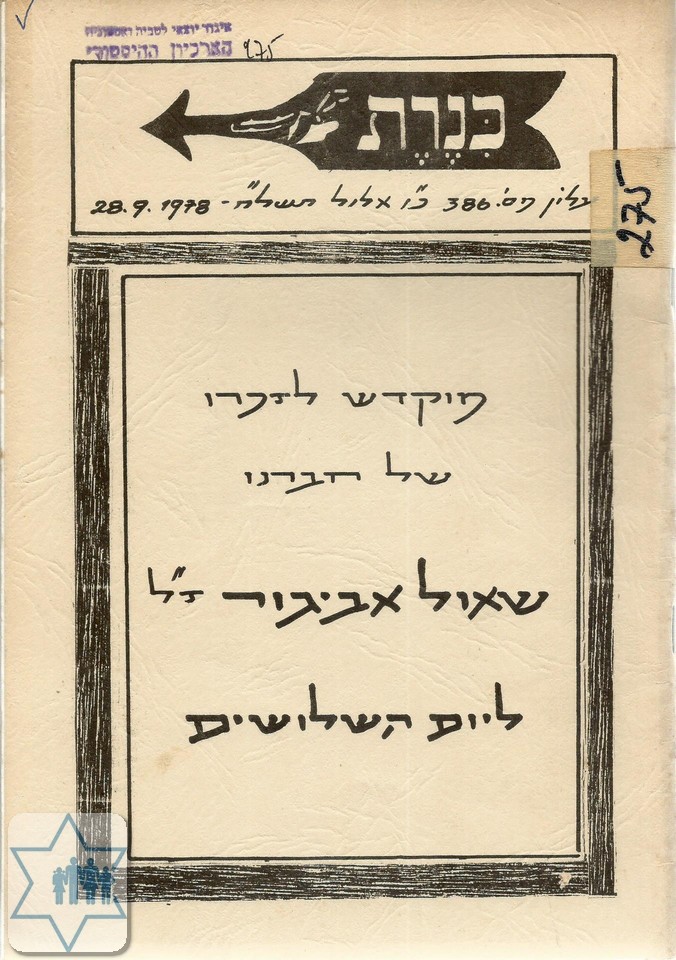 איגוד יוצאי לטביה ואסטוניה
הארכיון ההיסטורי
275
כִּנֶּרֶת
עלון מס. 386 כ"ו אלול תשל"ח - 28.9.1978
275
מוקדש לזכרו
של חברנו
שאול אביגור ז"ל
ליום השלושים